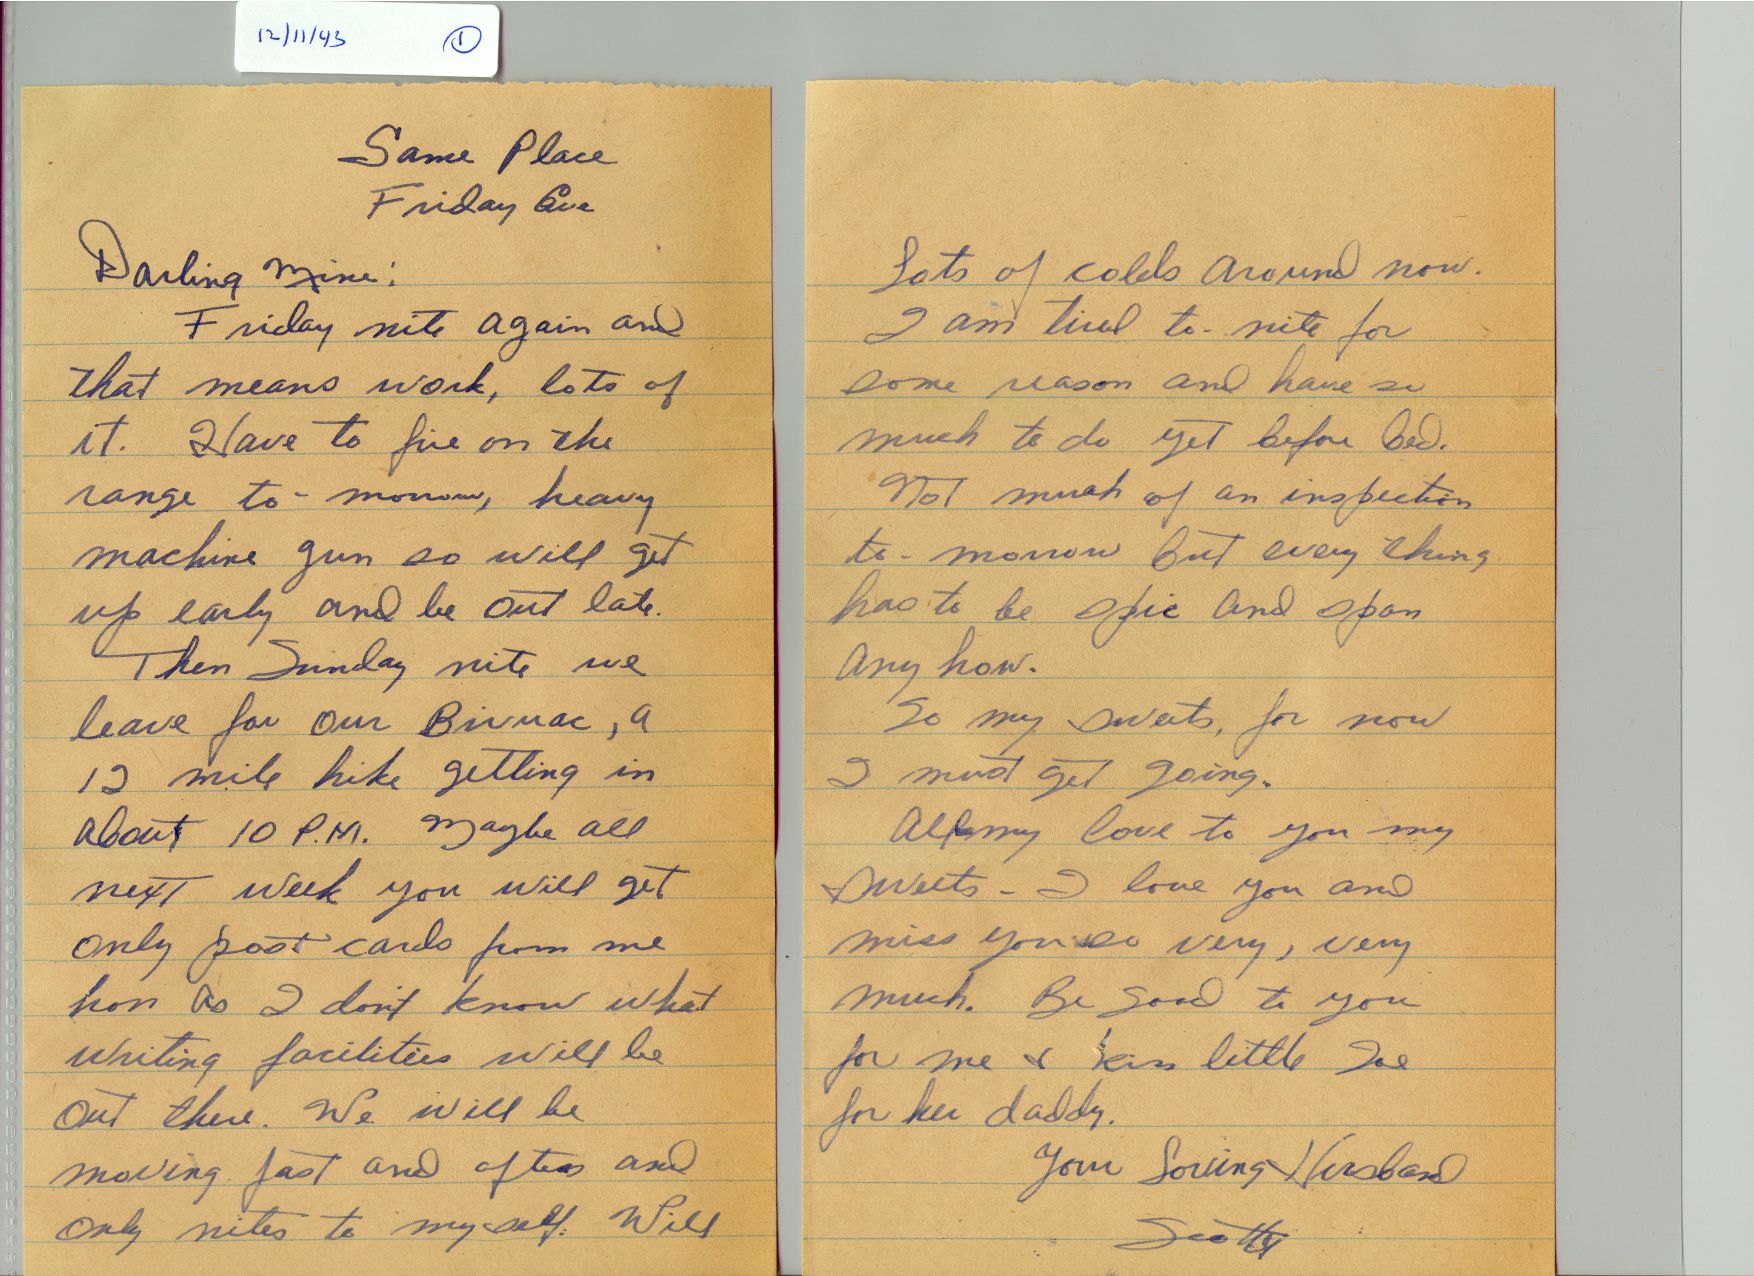 12/11/43 1
Same Place
Friday Eve
Darling Mine:
Friday nite again and
that means work, lots of
it. Have to fire on the
range to-morrow, heavy
machine gun so will get
up early and be out late.
Then Sunday nite we
leave for our Bivuac, a
12 mile hike getting in
about 10 P.M. Maybe all
next week you will get
only post cards from me
hon as I don't know what
writing facilities will be
out there. We will be
moving fast and often and
only nites to myself. Will
Lots of colds around now.
I am tired to-nite for
some reason and have so
much to do yet before bed.
Not much of an inspection
to-morrow but every thing
has to be spic and span
any how.
So my sweets, for now
I must get going.
All my love to you my
sweets - I love you and
miss you so very, very
much. Be good to you
for me & kiss little Joe
for her daddy.
Your Loving Husband
Scotty